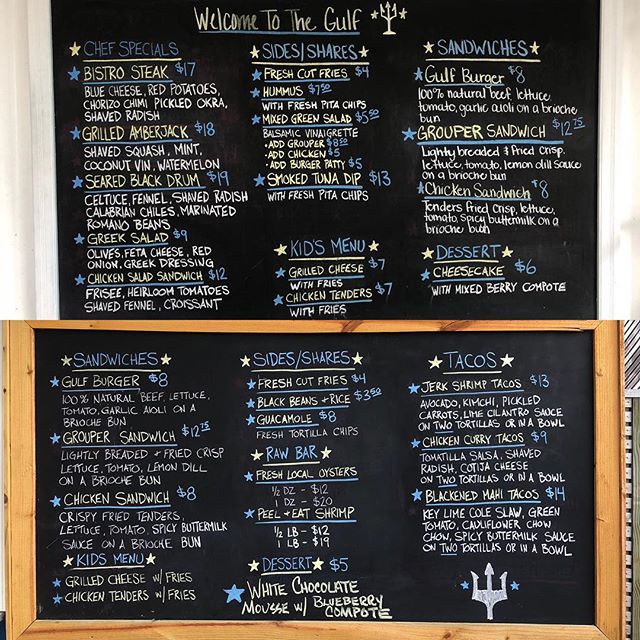 Welcome To The Gulf
CHEF SPECIALS
BISTRO STEAK $17
BLUE CHEESE, RED POTATOES,
CHORIZO CHIMI PICKLED OKRA,
SHAVED RADISH
GRILLED AMBERJACK $18
SHAVED SQUASH, MINT,
COCONUT VIN, WATERMELON
SEARED BLACK DRUM $19
CELTUCE, FENNEL, SHAVED RADISH
CALABRIAN CHILES, MARINATED
ROMANO BEANS
GREEK SALAD $9
OLIVES, FETA CHEESE, RED
ONION, GREEK DRESSING
CHICKEN SALAD SANDWICH $12
FRISEE, HEIRLOOM TOMATOES
SHAVED FENNEL, CROISSANT
SIDES/SHARES
FRESH CUT FRIES $4
HUMMUS $7.50
WITH FRESH PITA CHIPS
MIXED GREEN SALAD $5.50
BALSAMIC VINAIGRETTE
• ADD GROUPER $8.50
• ADD CHICKEN $5
• ADD BURGER PATTY $5
SMOKED TUNA DIP $13
WITH FRESH PITA CHIPS
KID'S MENU
GRILLED CHEESE $7
WITH FRIES
CHICKEN TENDERS $7
WITH FRIES
SANDWICHES
Gulf Burger $8
100% natural beef, lettuce,
tomato, garlic aioli on a brioche
bun
GROUPER SANDWICH $12.75
Lightly breaded & fried crisp.
lettuce, tomato, lemon dill sauce
on a brioche bun
Chicken Sandwich $8
Tenders fried crisp, lettuce,
tomato, spicy buttermilk on a
brioche bun
DESSERT
CHEESECAKE $6
WITH MIXED BERRY COMPOTE
SANDWICHES
GULF BURGER $8
100% NATURAL BEEF, LETTUCE,
TOMATO, GARLIC AIOLI ON A
BRIOCHE BUN
GROUPER SANDWICH $12.75
LIGHTLY BREADED & FRIED CRISP
LETTUCE, TOMATO, LEMON DILL
ON A BRIOCHE BUN
CHICKEN SANDWICH $8
CRISPY FRIED TENDERS,
LETTUCE, TOMATO, SPICY BUTTERMILK
SAUCE ON A BRIOCHE BUN
KIDS MENU
GRILLED CHEESE W/ FRIES
CHICKEN TENDERS W/ FRIES
SIDES/SHARES
FRESH CUT FRIES $4
BLACK BEANS + RICE $3.50
GUACAMOLE $8
FRESH TORTILLA CHIPS
RAW BAR
FRESH LOCAL OYSTERS
1/2 DZ - $12
1 DZ - $20
PEEL + EAT SHRIMP
1/2 LB - $12
1 LB - $19
DESSERT $5
WHITE CHOCOLATE
MOUSSE W/ BLUEBERRY
COMPOTE
TACOS
JERK SHRIMP TACOS $13
AVOCADO, KIMCHI, PICKLED
CARROTS, LIME CILANTRO SAUCE
ON TWO TORTILLAS OR IN A BOWL
CHICKEN CURRY TACOS $9
TOMATILLA SALSA, SHAVED
RADISH, COTIJA CHEESE
ON TWO TORTILLAS OR IN A BOWL
BLACKENED MAHI TACOS $14
KEY LIME COLE SLAW, GREEN
TOMATO, CAULIFLOWER CHOW
CHOW, SPICY BUTTERMILK SAUCE
ON TWO TORTILLAS OR IN A BOWL